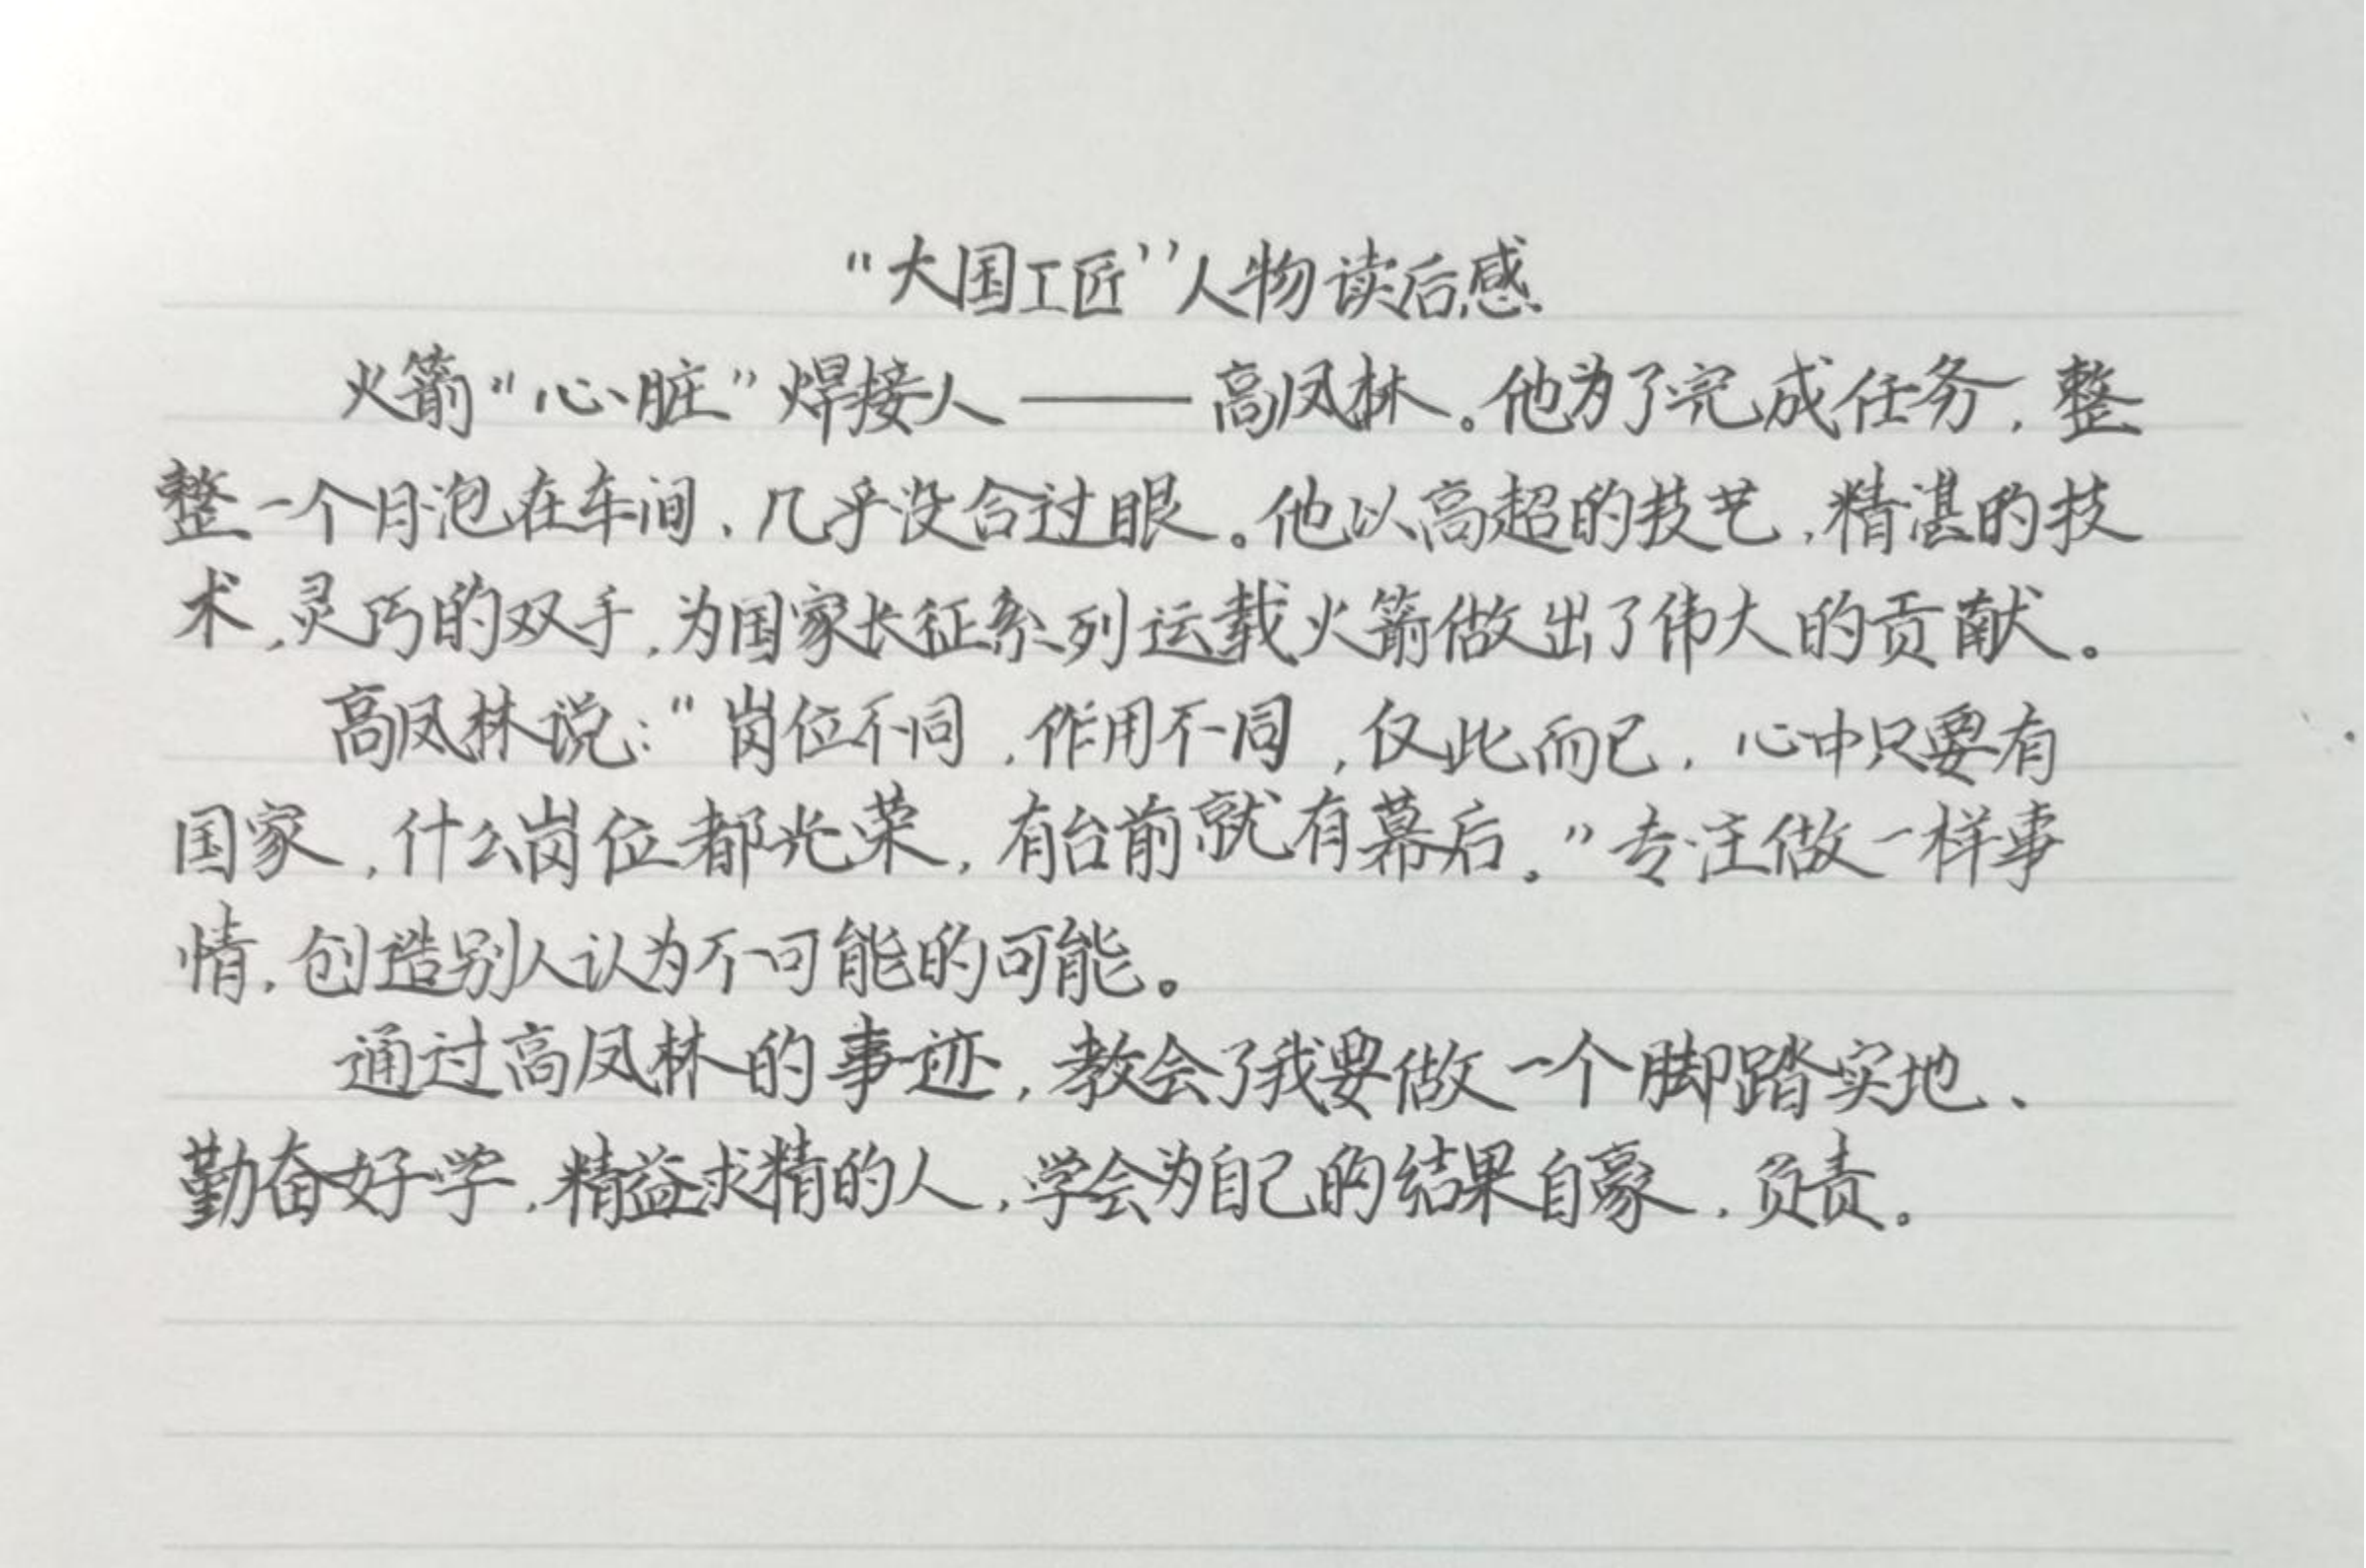 “大国工匠”人物读后感
火箭“心脏”焊接人——高凤林。他为了完成任务，整
整一个月泡在车间，几乎没合过眼。他以高超的技艺，精湛的技
术，灵巧的双手，为国家长征系列运载火箭做出了伟大的贡献。
高凤林说：“岗位不同，作用不同，仅此而已，心中只要有
国家，什么岗位都光荣，有台前就有幕后。”专注做一样事
情，创造别人认为不可能的可能。
通过高凤林的事迹，教会了我要做一个脚踏实地、
勤奋好学，精益求精的人，学会为自己的结果自豪，负责。